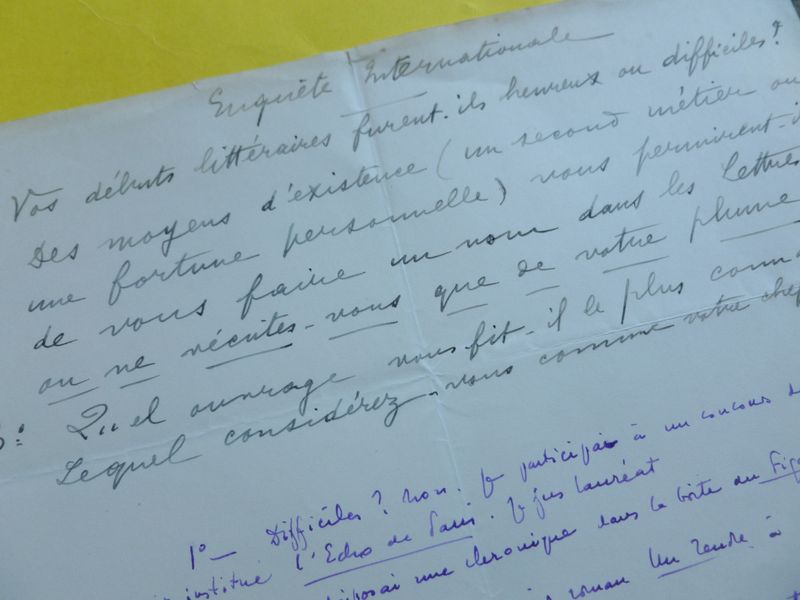 Enquête Internationale
Vos débuts littéraires furent-ils heureux ou difficiles?
Des moyens d'existence (un second métier ou
une fortune personnelle) vous permirent-i
de vous faire un nom dans les lettres
ou ne vécûtes-vous que de votre plume
3°: Quel ouvrage vous fit-il le plus conna
Lequel considérez-vous comme votre chef
1° — Difficiles? non. Je participai à un concours d
institué l'Echo de Paris. Je fus lauréat
posai une chronique dans la boîte du Figa
roman Un tendre à